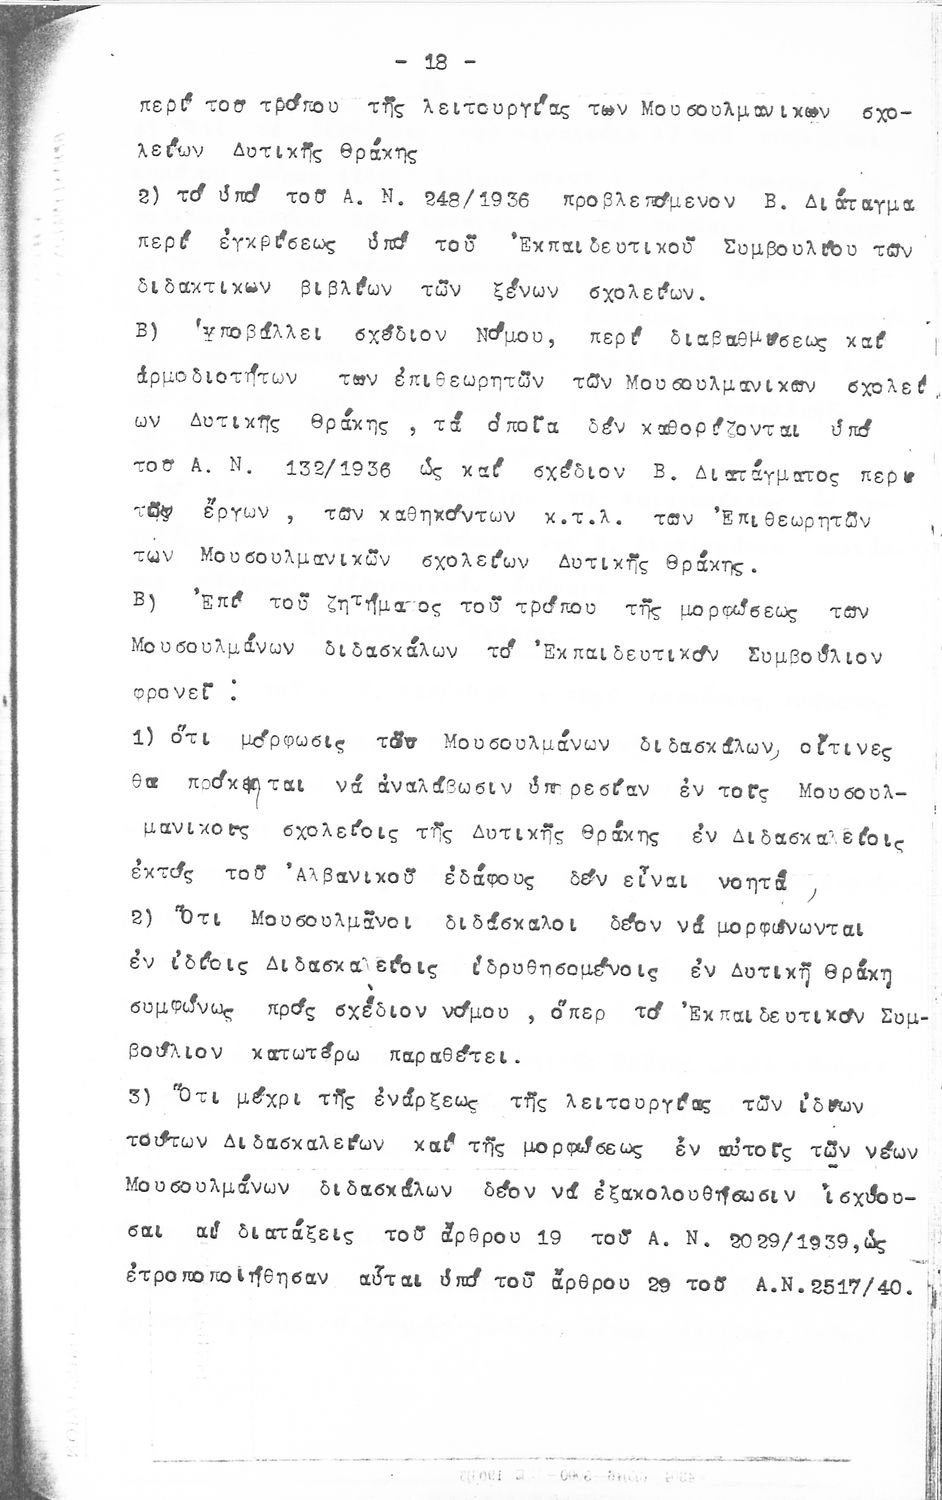 - 18 -
περί τοῦ τρόπου τῆς λειτουργίας των Μουσουλμανικων σχο-
λείων Δυτικῆς Θράκης
2) τό ὑπό τοῦ Α. Ν. 248/1936 προβλεπόμενον Β. Διάταγμα
περί ἐγκρίσεως ὑπό τοῦ Ἐκπαιδευτικοῦ Συμβουλίου τῶν
διδακτικων βιβλίων τῶν ξένων σχολείων.
Β) Ὑποβάλλει σχέδιον Νόμου, περί διαβαθμίσεως καί
ἁρμοδιοτήτων των ἐπιθεωρητῶν τῶν Μουσουλμανικων σχολεί
ων Δυτικῆς Θράκης , τά ὁποῖα δέν καθορίζονται ὑπό
τοῦ Α. Ν. 132/1936 ὡς καί σχέδιον Β. Διατάγματος περί
τῶν ἔργων , των καθηκόντων κ.τ.λ. των Ἐπιθεωρητῶν
των Μουσουλμανικῶν σχολείων Δυτικῆς Θράκης.
Β) Ἐπί τοῦ ζητήματος τοῦ τρόπου τῆς μορφώσεως των
Μουσουλμάνων διδασκάλων τό Ἐκπαιδευτικόν Συμβούλιον
φρονεῖ :
1) ὅτι μόρφωσις τῶν Μουσουλμάνων διδασκάλων, οἵτινες
θα πρόκηται νά ἀναλάβωσιν ὑπηρεσίαν ἐν τοῖς Μουσουλ-
μανικοις σχολείοις τῆς Δυτικῆς Θράκης ἐν Διδασκαλείοις
ἐκτός τοῦ Ἀλβανικοῦ ἐδάφους δέν εἶναι νοητά ,
2) Ὅτι Μουσουλμᾶνοι διδάσκαλοι δέον νά μορφώνωνται
ἐν ἰδίοις Διδασκαλείοις ἱδρυθησομένοις ἐν Δυτικῇ Θράκη
συμφώνως πρός σχέδιον νόμου , ὅπερ τό Ἐκπαιδευτικόν Συμ-
βούλιον κατωτέρω παραθέτει.
3) Ὅτι μέχρι τῆς ἐνάρξεως τῆς λειτουργίας τῶν ἰδίων
τούτων Διδασκαλείων καί τῆς μορφώσεως ἐν αὐτοῖς τῶν νέων
Μουσουλμάνων διδασκάλων δέον νά ἐξακολουθήσωσιν ἰσχύου-
σαι αἱ διατάξεις τοῦ ἄρθρου 19 τοῦ Α. Ν. 2029/1939,ὡς
ἐτροποποιήθησαν αὗται ὑπό τοῦ ἄρθρου 29 τοῦ Α.Ν.2517/40.